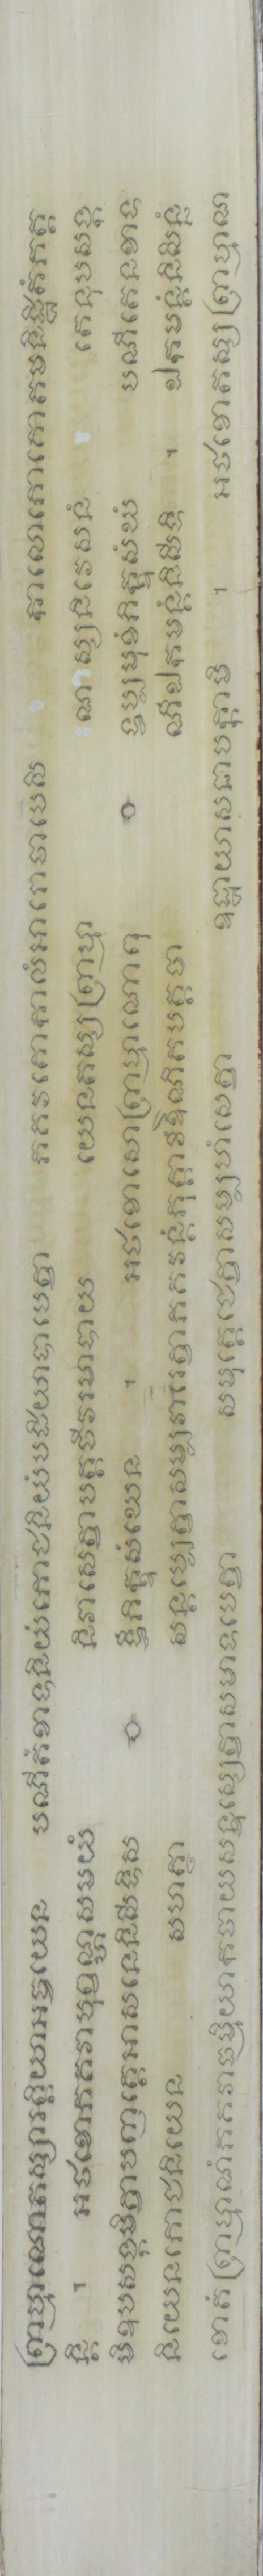 ព្រាហ្មណោតស្សារត្តិយាអច្ចយេន បណីតំខាទនិយំភោជនិយំបដិយាទាបេត្វា ភគវតោកាលំអារោចាបេសិ កាលោភោគោតមនិដ្ឋិតំភត្ត
ន្តិ ។ អថខោភគវាបុព្វណ្ហសមយំ និវាសេត្វាបត្តចីវរមាទាយ យេនតស្សព្រាហ្ម ណស្សនិវេសនំ តេនុបសង្ក
មិឧបសង្កមិត្វាបញ្ញត្តេអាសនេនិសីទិស ទ្ធឹភិក្ខុសំឃេន ។ អថខោសោព្រាហ្មណោពុ ទ្ធប្បមុខំភិក្ខុសំឃំ បណីតេនខាទ
និយេនភោជនិយេន សហត្ថា សន្តប្បេត្វាសម្បវារេត្វាភគវន្តំភុត្តាវឹឱណិតបត្តបា ណឹឯកមន្តំនិសីទិ ។ ឯកមន្តំនិសិន្នំ
ខោតំព្រាហ្មណំភគវាធម្មិយាកថាយសន្ទស្សេត្វាសមាទបេត្វា សមុត្តេជេត្វាសម្បហំសេត្វា ឧដ្ឋាយាសនាបក្កាមិ ។ អថខោតស្សព្រាហ្មណ